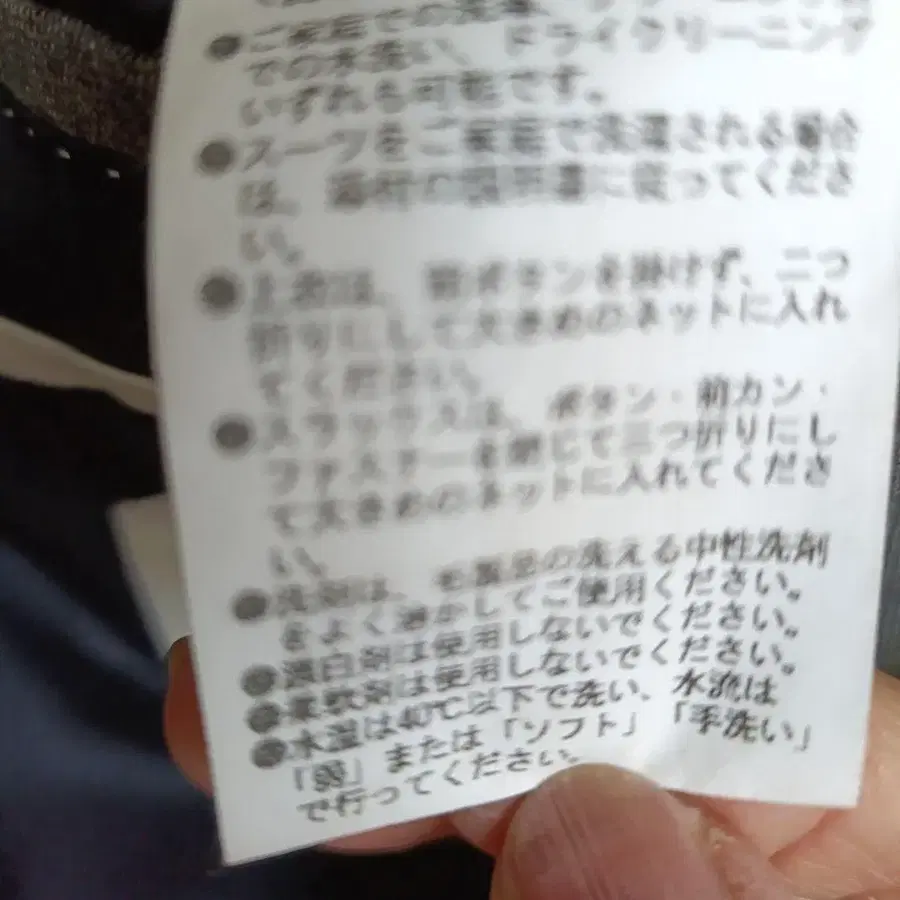 ●ご家庭での洗濯、クリーニング
での水洗い、ドライクリーニング
いずれも可能です。
●スーツをご家庭で洗濯される場合
は、添付の説明書に従ってくださ
い。
●上衣は、前ボタンを掛けず、二つ
折りにして大きめのネットに入れ
てください。
●スラックスは、ボタン・前カン・
ファスナーを閉じて三つ折りにし
て大きめのネットに入れてくださ
い。
●洗剤は、毛製品の洗える中性洗剤
をよく溶かしてご使用ください。
●漂白剤は使用しないでください。
●柔軟剤は使用しないでください。
●水温は40℃以下で洗い、水流は
「弱」または「ソフト」「手洗い」
で行ってください。